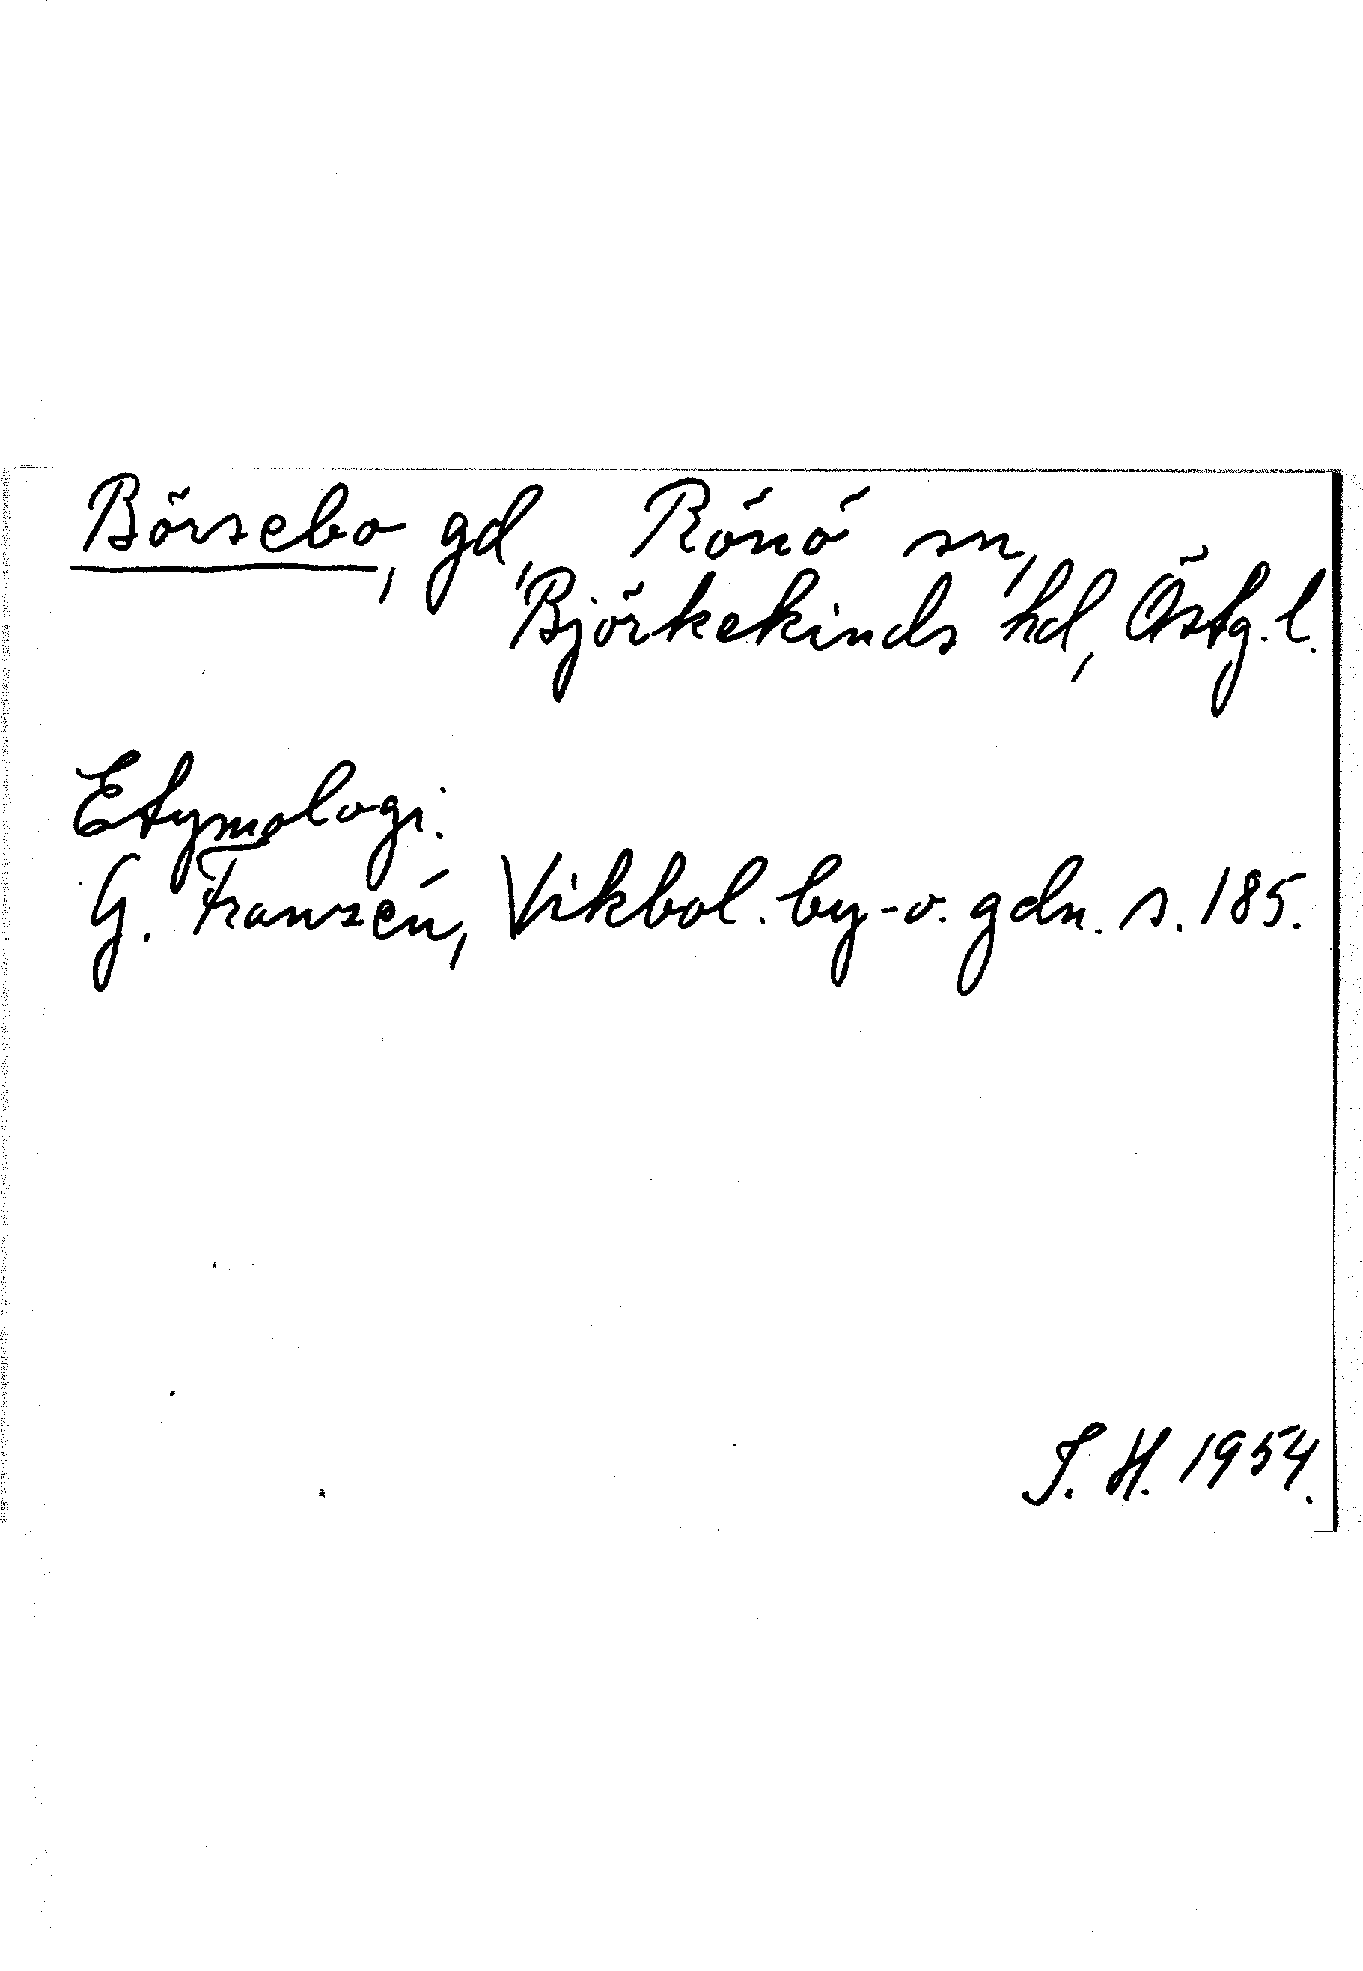 Börsebo, gd, Rönö sn,
Björkekinds hd, Östg. l.
Etymologi.
G. Franzén, Vikbol. by- o. gdn. s. 185.
J. H. 1954.